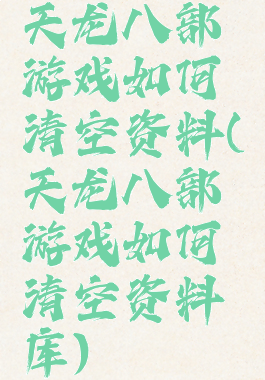 天龙八部
游戏如何
清空资料(
天龙八部
游戏如何
清空资料
库)